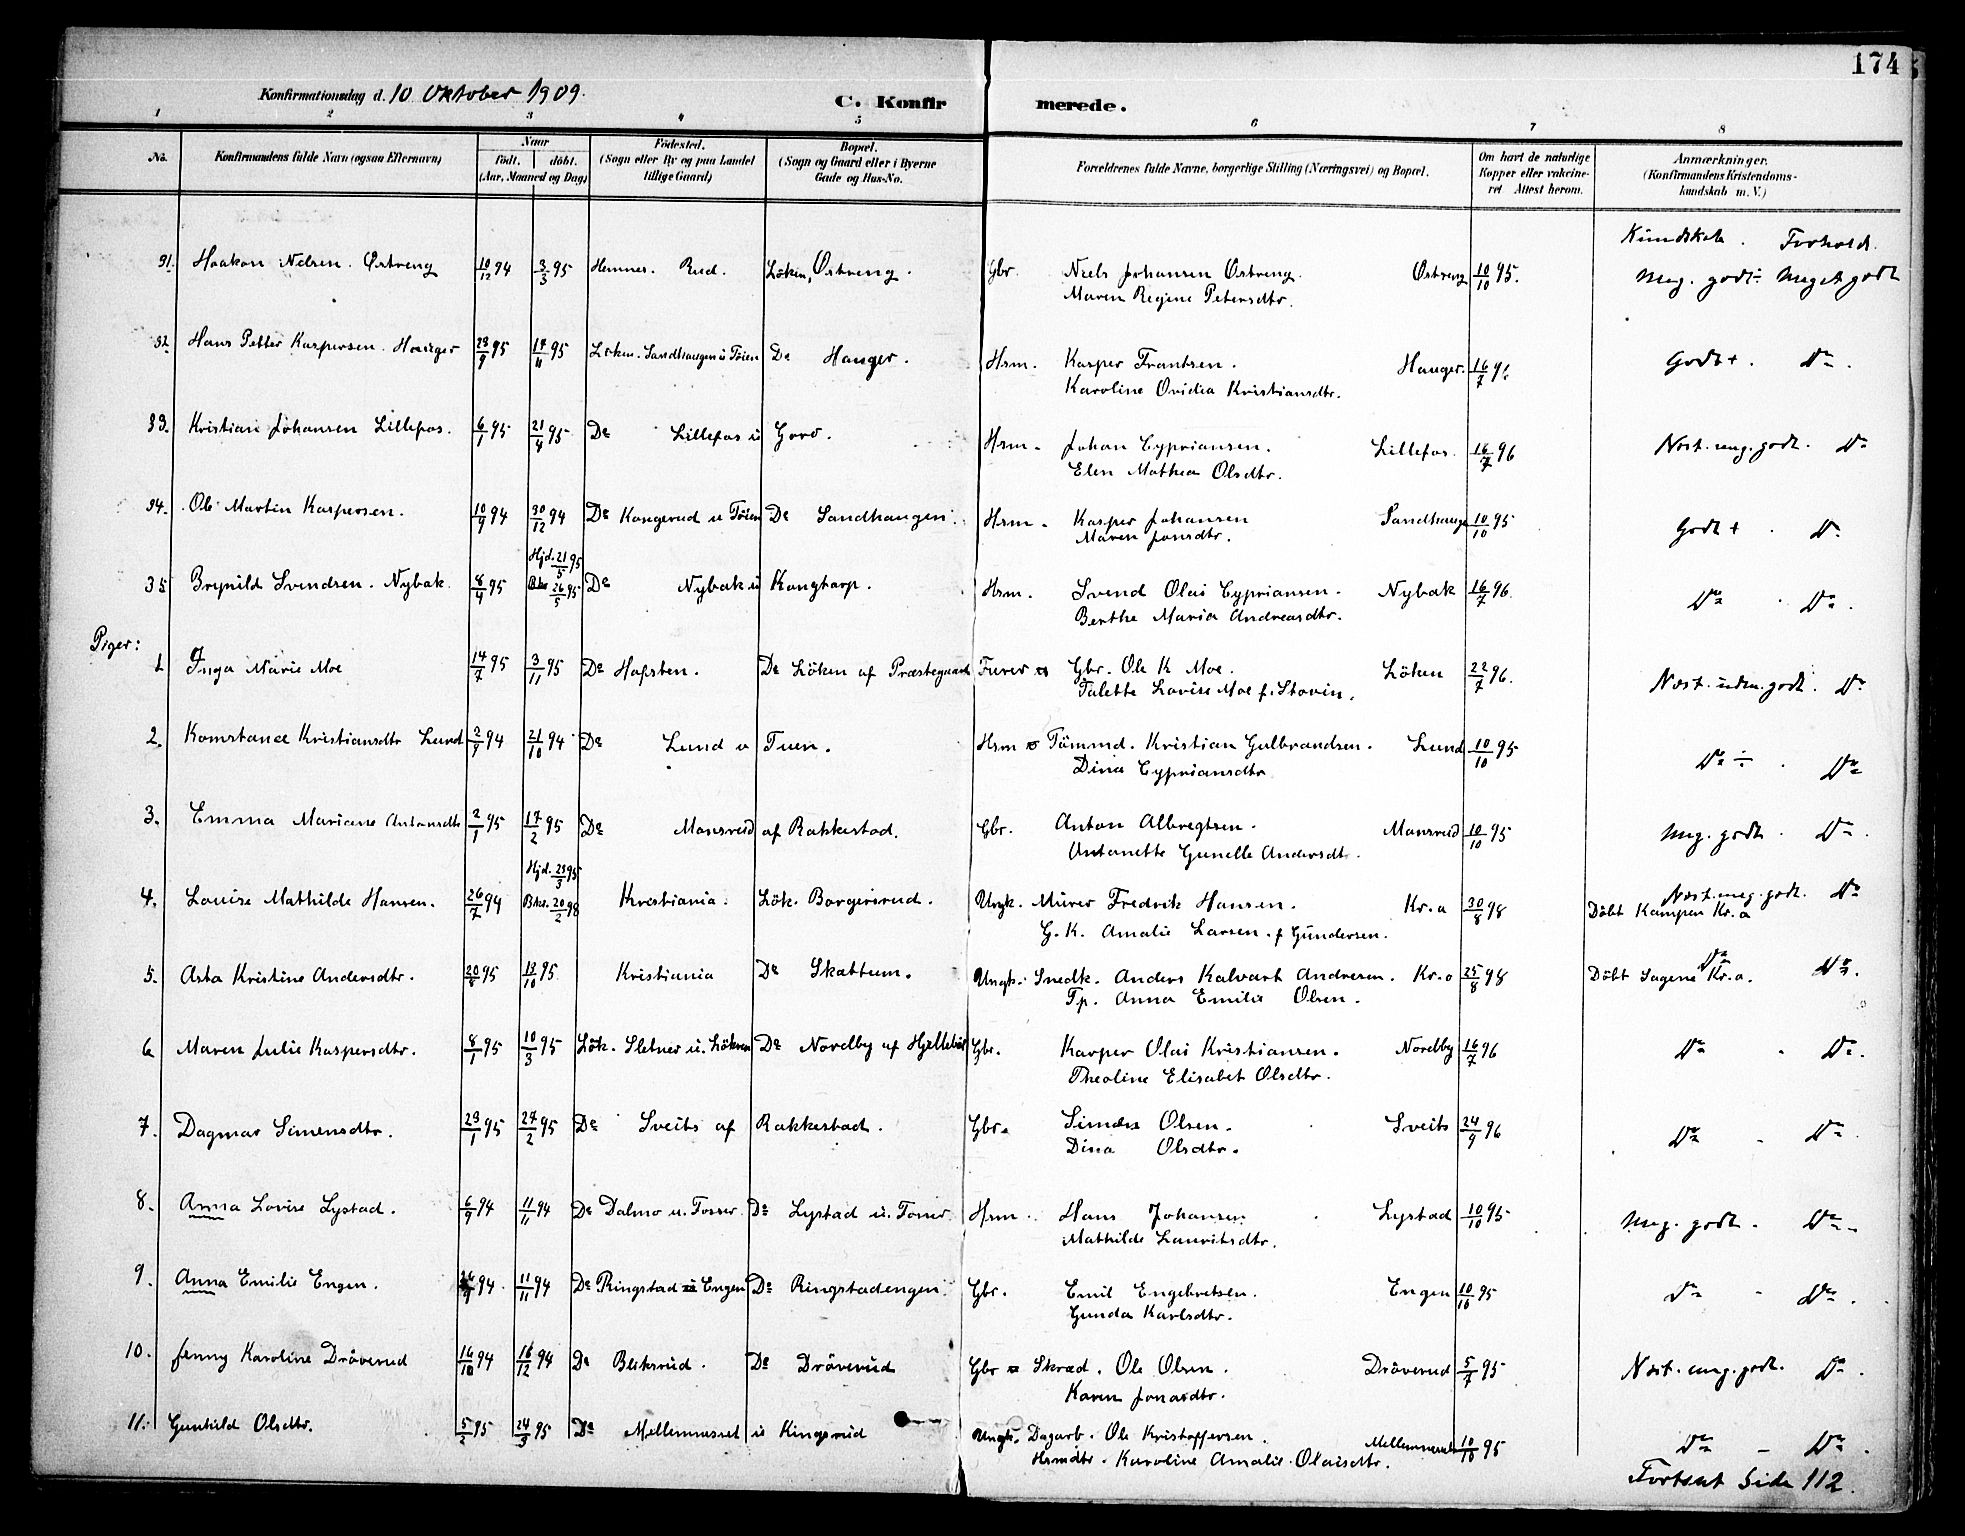 174
Konfirmationsdag d. 10 Oktober 1909.
C. Konfirmerede.
1 2 3 4 5 6 7 8
No. Konfirmandens fulde Navn (ogsaa Efternavn) Naar født. døbt. (Aar, Maaned og Dag) Fødested. (Sogn eller By og paa Landet tillige Gaard) Bopæl. (Sogn og Gaard eller i Byerne Gade og Hus-No. Forældrenes fulde Navne, borgerlige Stilling (Næringsvei) og Bopæl. Om havt de naturlige Kopper eller vakcineret Attest herom. Anmærkninger. (Konfirmandens Kristendomskundskab m. V.)
Kundskab. Forhold.
31. Haakon Nelsen. Østreng 10/12 94 3/3 95 Hemnes. Rud. Löken, Østreng. Gbr. Niels Johansen Østreng. Østreng 10/10 95. Meg. godt ÷ Meget godt
Maren Regine Petersdtr.
32. Hans Petter Kaspersen. Hauger 95 95 Löken. Sandhaugen u Töien Do Hauger. Hrm. Kasper Frantsen. Hauger. 16/7 Godt +. Do.
Karoline Ovidia Kristiansdtr.
33. Kristian Johansen Lillefos. 6/1 95 21/4 95 Do Lillefos u Hrm. Johan Cypriansen. Lillefos. 16/7 96 Næst. meg. godt. Do
Elen Mathea Olsdtr.
34. Ole Martin Kaspersen. 10/9 94 30/12 94 Do Kangerud u Töien Do Sandhaugen. Hrm. Kasper Johansen 10/10 95 Godt + Do
Maren Jonsdtr.
Hjd. 21/5 95
35 Brynild Svendsen. Nybak. 8/4 95 26/5 95 Do Nybak u Kangtorp. Hrm. Svend Olai Cypriansen. Nybak 16/7 96. Do Do.
Berthe Maria Andreasdtr.
Piger:
1. Inga Marie Moe 14/7 95 3/11 95 Do Hofsten. Do Löken af Præstegaard Gbr. Ole K Moe. Löken 22/7 96. Næst. godt. Do
Talette Lovise Moe f. Stovin.
2. Konstance Kristiansdtr Lund 2/9 94 21/10 94 Do Lund u Tuen. Hrm Tömmd. Kristian Gulbrandsen. Lund 10/10 95 Do ÷. Do
Dina Cypriansdtr
3. Emma Mariane Antonsdtr 2/1 95 17/2 95 Do Monsrud af Rakkestad. Gbr. Anton Albregtsen. Monsrud 10/10 95 Meg. godt. Do.
Antonette Gunelle Andersdtr.
Hjd. 95
4. Louise Mathilde Hansen. 26/7 94 20/2 98 Kristiania. Lök. Borgersrud. Ungk. Murer Fredrik Hansen. Kr.a 30/8 98 Næst. meg. godt. Do
G.K. Amalie Larsen. f Gundersen. Döbt Kampen Kr.a
5. Asta Kristine Andersdtr. 20/8 95 13/10 95 Kristiania Do Skattum. Ungk. Snedk. Anders Kalvart Andresen. Kr.a 25/8 98 Döbt Sagene Kr.a. Do Do.
Tp. Anna Emilie Olsen.
6 Maren Julie Kaspersdtr. 8/1 95 10/3 95 Lök. Sletner u. Löken Do Nordby af Gbr. Kasper Olai Kristiansen. Nordby 16/7 96 Do Do.
Theoline Elisabet Olsdtr.
7. Dagmar Simensdtr. 23/1 95 24/2 95 Do Sveits af Rakkestad. Gbr. Simen Olsen. Sveits 24/9 96 Do Do
Dina Olsdtr.
8. Anna Lovise Lystad. 6/9 94 11/11 94 Do Dalmo u. Tosser. Do Lystad u. Hrm. Hans Johansen Lystad 10/10 95 Meg. godt. Do
Mathilde Lauritsdtr.
9. Anna Emilie Engen. 94 11/11 94 Do Ringstad Engen Do Ringstadengen. Gbr. Emil Engebretsen. Engen 10/10 95 Do Do.
Gunda Karlsdtr.
10. Jenny Karoline Dröverud 14/10 94 16/12 94 Do Bliksrud. Do Dröverud Gbr Skræd. Ole Olsen. Dröverud 5/7 95 Næst. meg. godt. Do.
Karen Jonasdtr.
11. Gunhild Olsdtr. 5/2 95 24/3 95 Do Mellemnæsset u Kingsrud Ungk. Dagarb. Ole Kristoffersen. 10/10 95 Do Do.
Hrmdtr. Karoline Amalie Olaisdtr.
Fortsat Side 112.